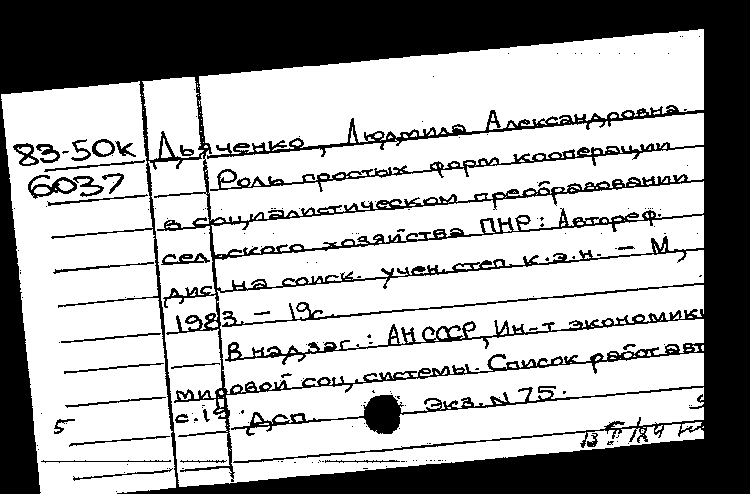 83-50к Дьяченко, Людмила Александровна.
6037 Роль простых форм кооперации
в социалистическом преобразовании
сельского хозяйства ПНР: Автореф.
дис. на соиск. учен. степ. к.э.н. – М.,
1983. – 19с.
В надзаг.: АН СССР, Ин-т экономики
мировой соц. системы. Список работ авт
с.19. Дсп. Экз. N 75.
5